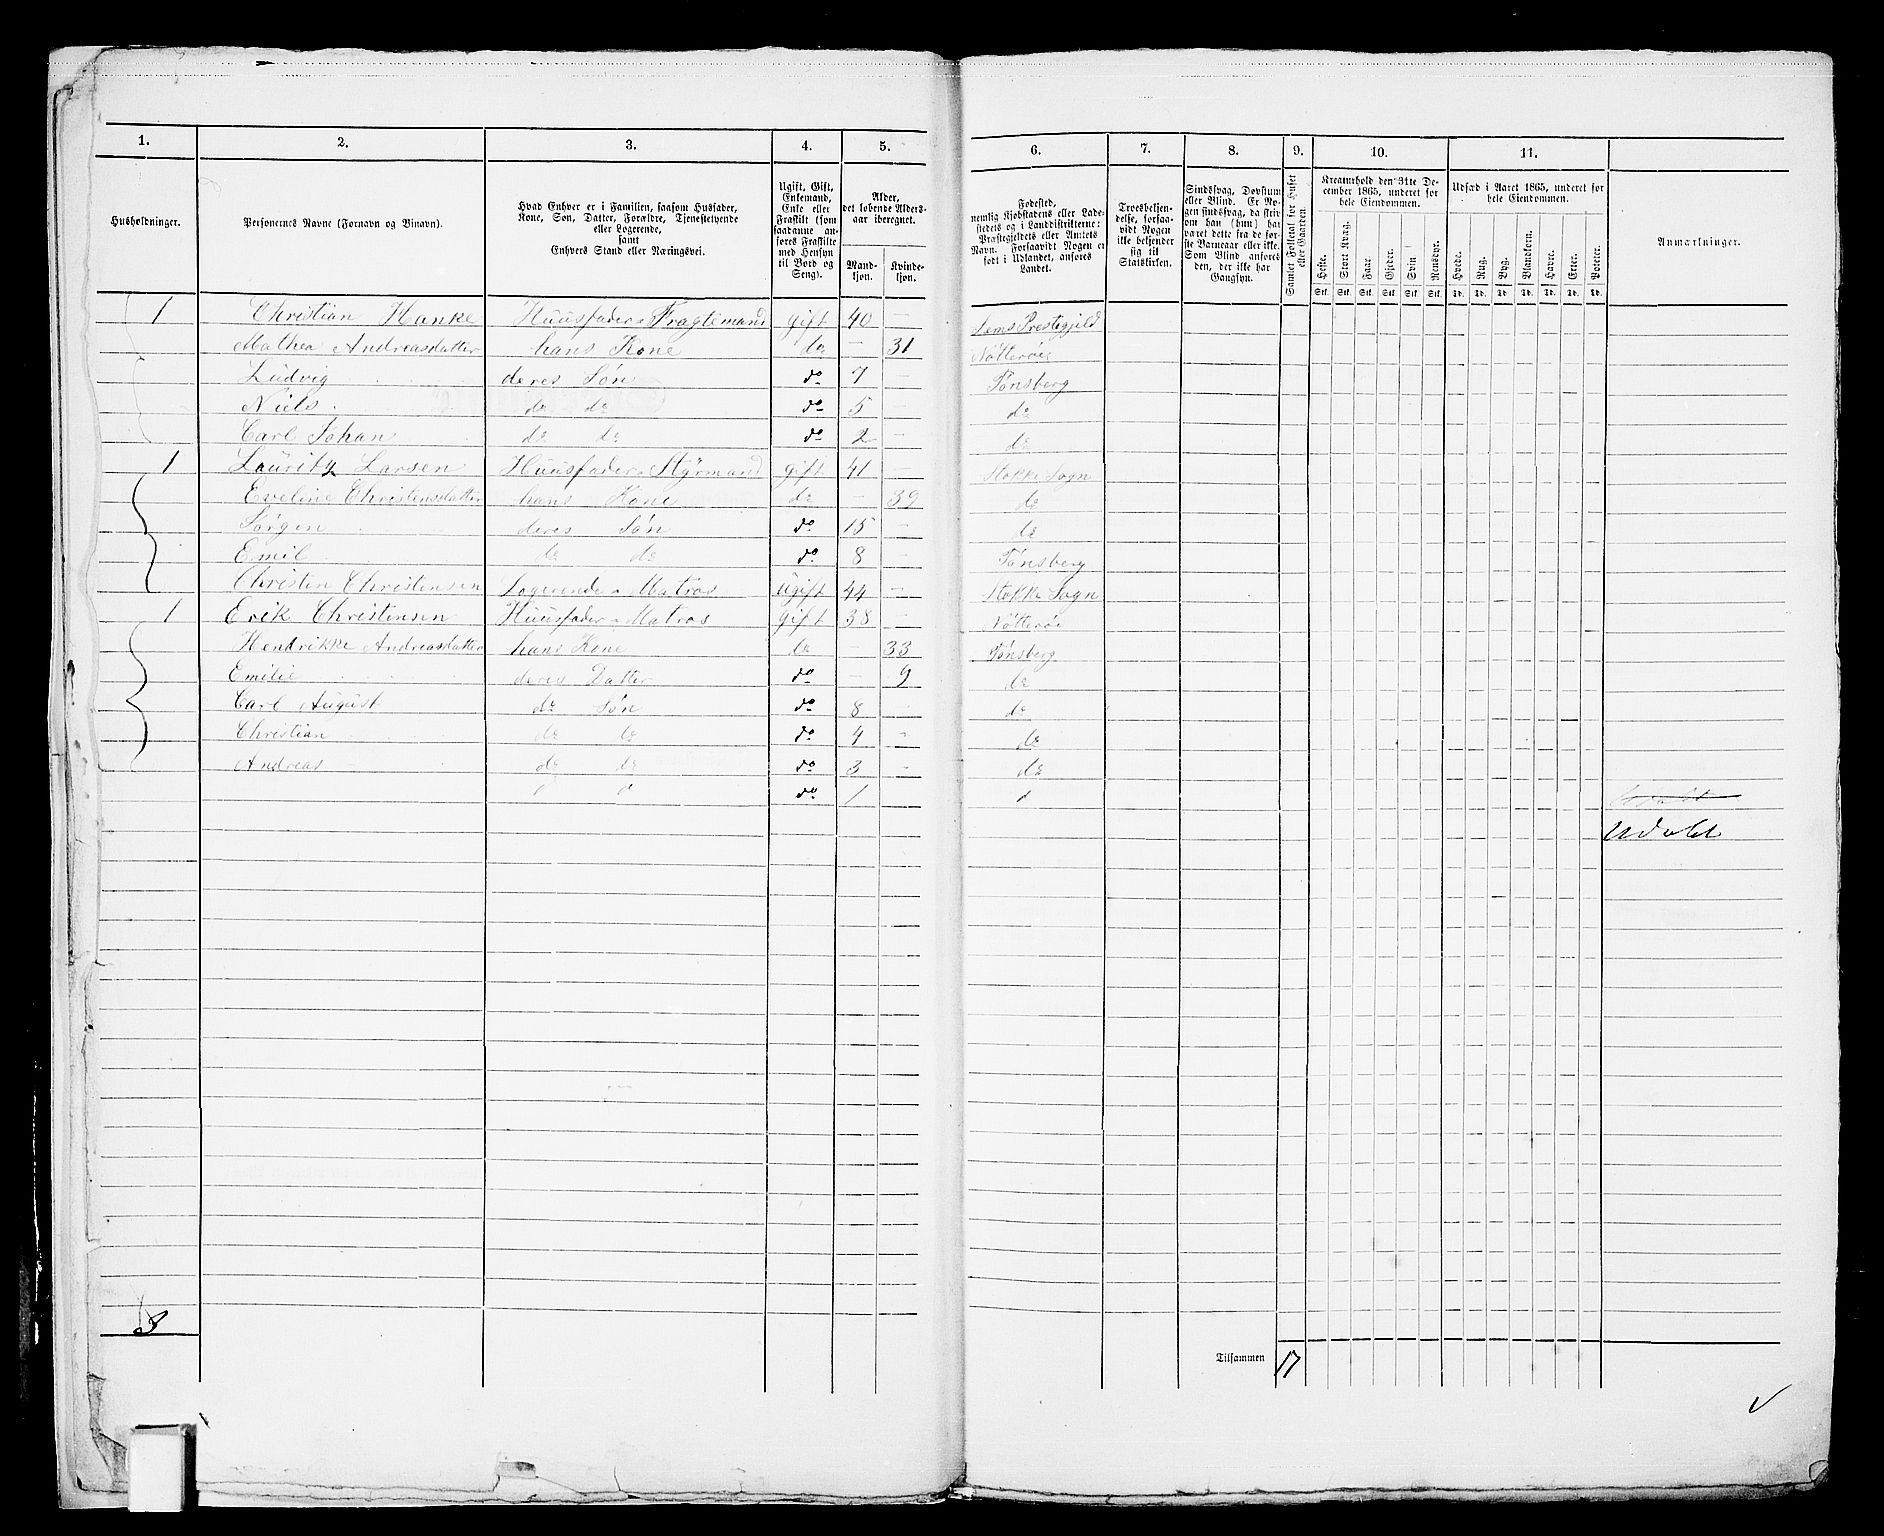 1. 2. 3. 4. 5. 6. 7. 8. 9. 10. 11.
Husholdninger.
Personernes Navne (Fornavn og Binavn).
Hvad Enhver er i Familien, saasom Husfader,
Kone, Søn, Datter, Forældre, Tjenestetyende
eller Logerende,
samt
Enhvers Stand eller Næringsvei.
Ugift, Gift,
Enkemand,
Enke eller
Fraskilt (som
saadanne an-
føres Fraskilte
med Hensyn
til Bord og
Seng).
Alder,
det løbende Alders-
aar iberegnet.
Mand-
kjøn.
Kvinde-
kjøn.
Fødested,
nemlig Kjøbstadens eller Lade-
stedets og i Landdistrikterne:
Præstegjeldets eller Amtets
Navn. Forsaavidt Nogen er
født i Udlandet, anføres
Landet.
Troesbekjen-
delse, forsaa-
vidt Nogen
ikke bekjender
sig til
Statskirken.
Sindssvag, Døvstum
eller Blind. (Er No-
gen sindssvag, da skriv
om han (hun) har
været dette fra de før-
ste Barneaar eller ikke.
Som Blind anføres
den, der ikke har
Gangsyn.
Samlet Folketal for Huset
eller Gaarden.
Kreaturhold den 31te De-
cember 1865, underet for
hele Eiendommen.
Heste. Stort Kvæg. Faar. Gjeder. Svin Rensdyr.
Stk. Stk. Stk. Stk. Stk. Stk.
Udsæd i Aaret 1865, underet for
hele Eiendommen.
Hvede. Rug. Byg. Blandkorn. Havre. Erter. Poteter.
Td. Td. Td. Td. Td. Td. Td.
Anmærkninger.
1 Christian Hanke Huusfader Fragtemand gift 40 - Sems Prestegjeld
Mathea Andreasdatter hans Kone do - 31 Nötteröe
Ludvig deres Søn do 7 - Tønsberg
Niels do do do 5 - do
Carl Johan do do do 2 - do
1 Lauritz Larsen Huusfader Styrmand gift 41 - Stokke Sogn
Eveline Christensdatter hans Kone do - 39 do
Jørgen deres Søn do 15 - do
Emil do do do 8 - Tønsberg
Christin Christensen Logerende Matros Ugift 44 - Stokke Sogn
1 Erik Christensen Huusfader Matros gift 38 - Nötteröe
Hendrikke Andreasdatter hans Kone do - 33 Tønsberg
Emilie deres Datter do - 9 do
Carl August do Søn do 8 - do
Christian do do do 4 - do
Andreas do do do 3 - do
do 1
Udøbt
3
Tilsammen 17